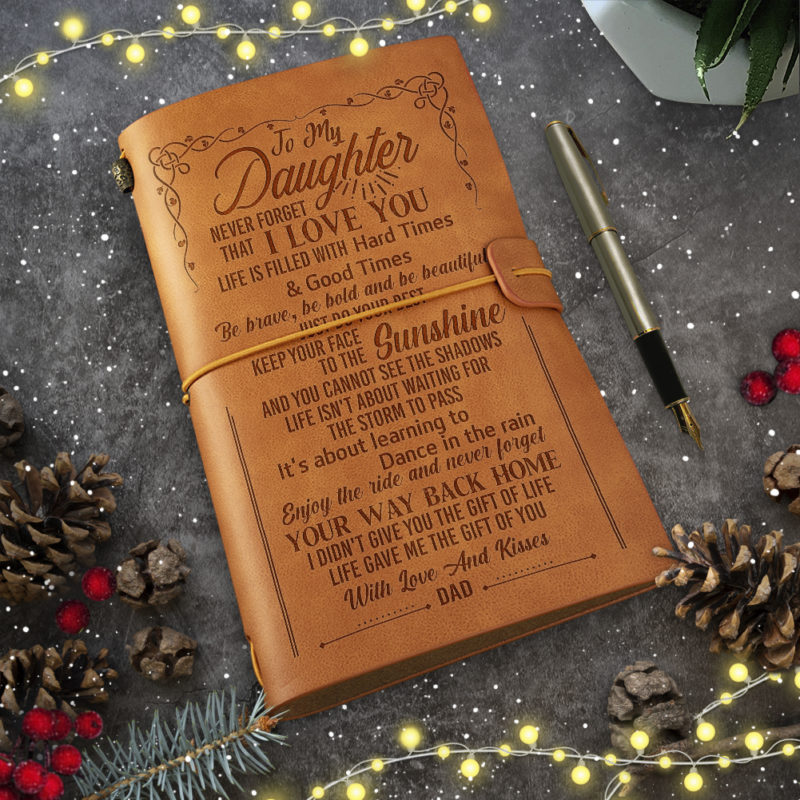 To My
Daughter
NEVER FORGET
THAT I LOVE YOU
LIFE IS FILLED WITH Hard Times
& Good Times
Be brave, be bold and be beautiful
JUST DO YOUR BEST
KEEP YOUR FACE
TO THE Sunshine
AND YOU CANNOT SEE THE SHADOWS
LIFE ISN'T ABOUT WAITING FOR
THE STORM TO PASS
It's about learning to
Dance in the rain
Enjoy the ride and never forget
YOUR WAY BACK HOME
I DIDN'T GIVE YOU THE GIFT OF LIFE
LIFE GAVE ME THE GIFT OF YOU
With Love And Kisses
DAD